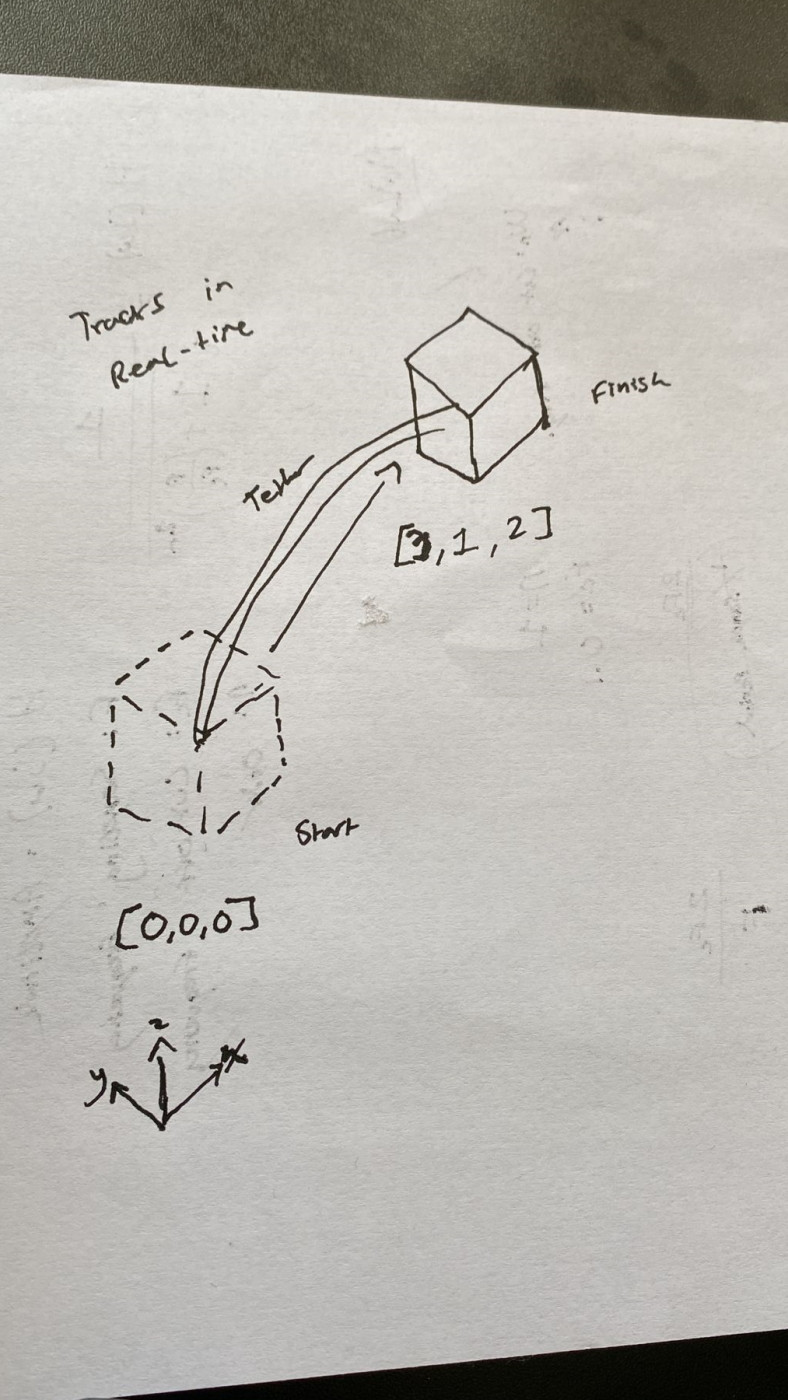 Tracks in
Real-time
Finish
Tether
[3,1,2]
Start
[0,0,0]
z
y
x